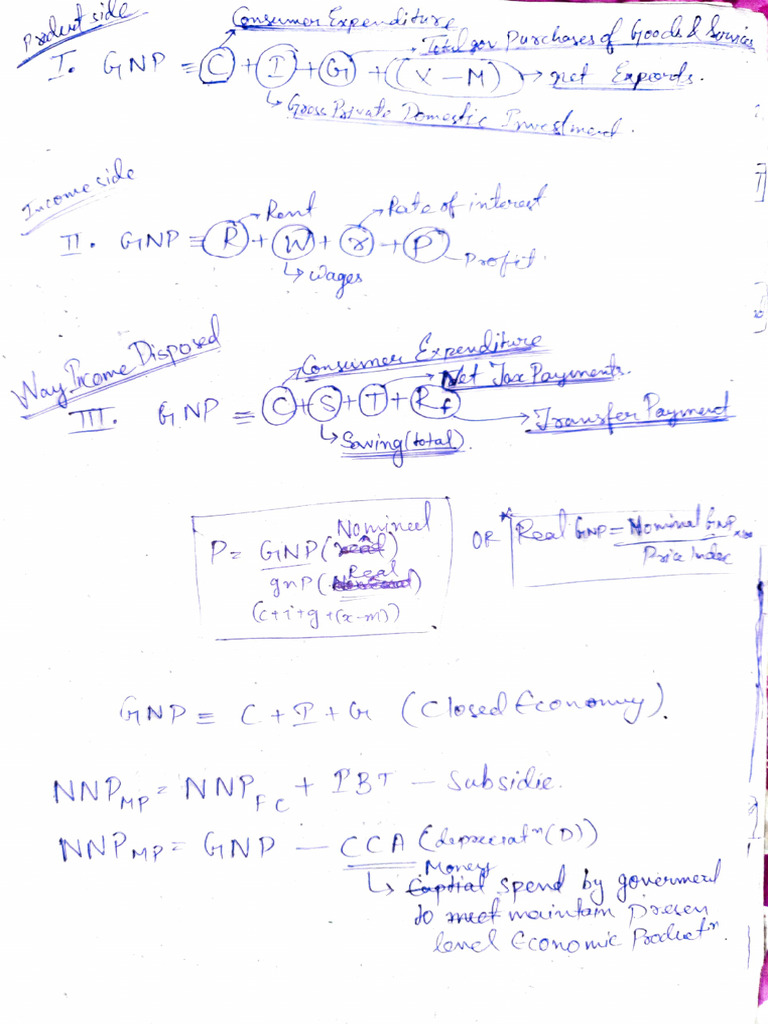 Product side
Consumer Expenditure
Total gov Purchases of Goods & Services
I. GNP ≡ C + I + G + (X - M) → net Exports.
↳ Gross Private Domestic Investment.
Income side
Rent
Rate of interest
II. GNP ≡ R + W + r + P
Profit
↳ wages
Way Income Disposed
Consumer Expenditure
Net Tax Payments.
III. GNP ≡ C + S + T + Rf
→ Transfer Payment
↳ Saving (total)
Nomineel
P = GNP (real)
Real
gnp (
(c+i+g+(x-m))
OR * Real GNP = Nominal GNP x100
Price Index
GNP ≡ C + I + G (Closed Economy).
NNP MP = NNP FC + IBT - Subsidie.
NNP MP = GNP - CCA (depreciatⁿ (D))
Money
↳ Captial spend by goverment
to meet maintain presen
level Economic Productⁿ.